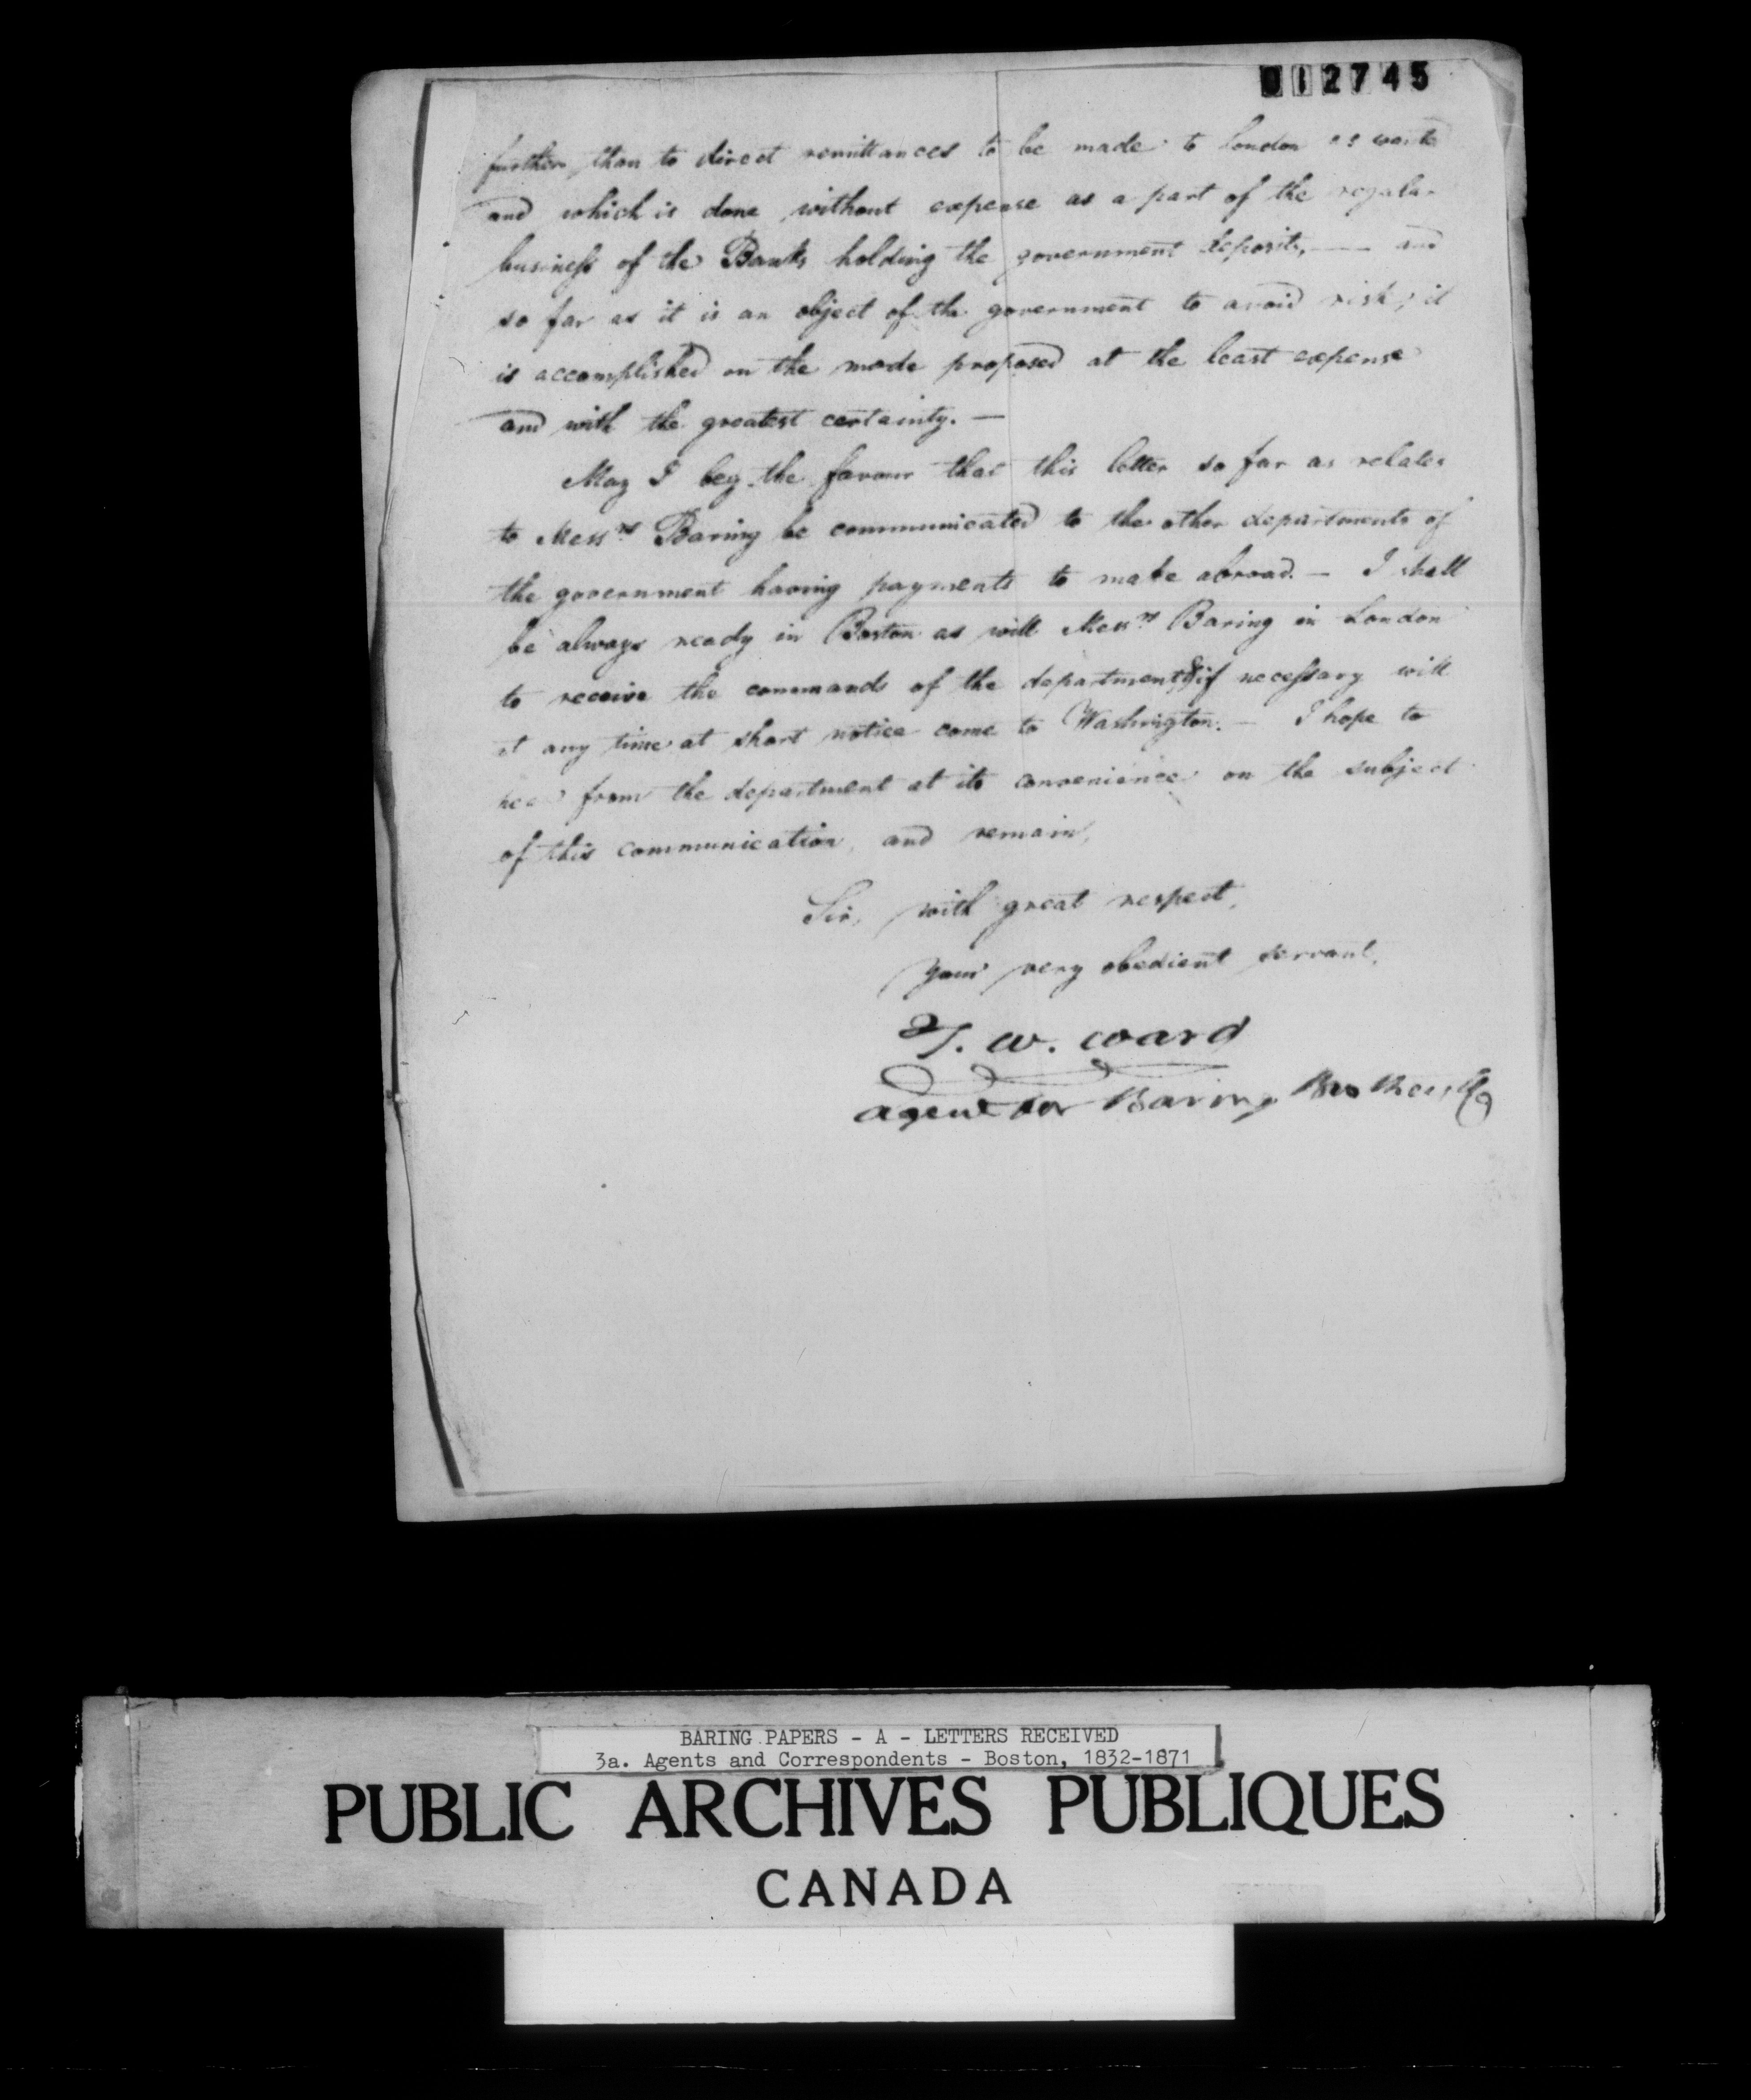 012745
further than to direct remittances to be made to London as
and which is done without expense as a part of the regular
business of the Banks holding the government deposits, — and
so far as it is an object of the government to avoid risk, it
is accomplished on the mode proposed at the least expense
and with the greatest certainty. —
May I beg the favour that this letter so far as relates
to Messrs Baring be communicated to the other departments of
the government having payments to make abroad. — I shall
be always ready in Boston as will Messrs Baring in London
to receive the commands of the department, & if necessary will
at any time at short notice come to Washington. — I hope to
hear from the department at its convenience on the subject
of this communication, and remain,
Sir, with great respect,
Your very obedient servant,
T. W. Ward
agent for Baring Brothers & Co
BARING PAPERS - A - LETTERS RECEIVED
3a. Agents and Correspondents - Boston, 1832-1871
PUBLIC ARCHIVES PUBLIQUES
CANADA